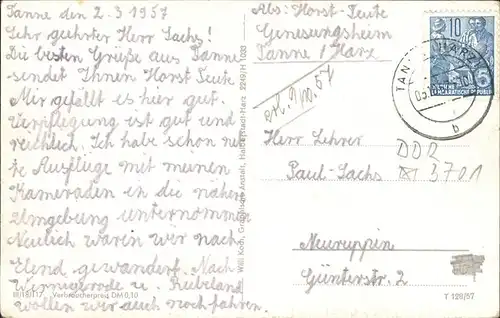 Tanne den 2.3 1957
Sehr geehrter Herr Sachs!
Die besten Grüße aus Tanne
sendet Ihnen Horst Teute
Mir gefällt es hier gut.
Verpflegung ist gut und
reichlich. Ich habe schon
Ausflüge mit meinen
Kameraden in die nähere
Umgebung unternommen
Neulich waren wir nach
Elend gewandert. Nach
Wernigerode u. Rübeland
wollen wir auch noch fahren.
III/18/117 Verbraucherpreis DM 0,10
Will Koch, Graphische Anstalt, Halberstadt-Harz 2249/H 1033
Abs: Horst Teute
Genesungsheim
Tanne / Harz
10
TANNE (HARZ)
b
Herr Lehrer
DDR
Paul-Sachs
3701
Neuruppin
Günterstr. 2
T 129/57